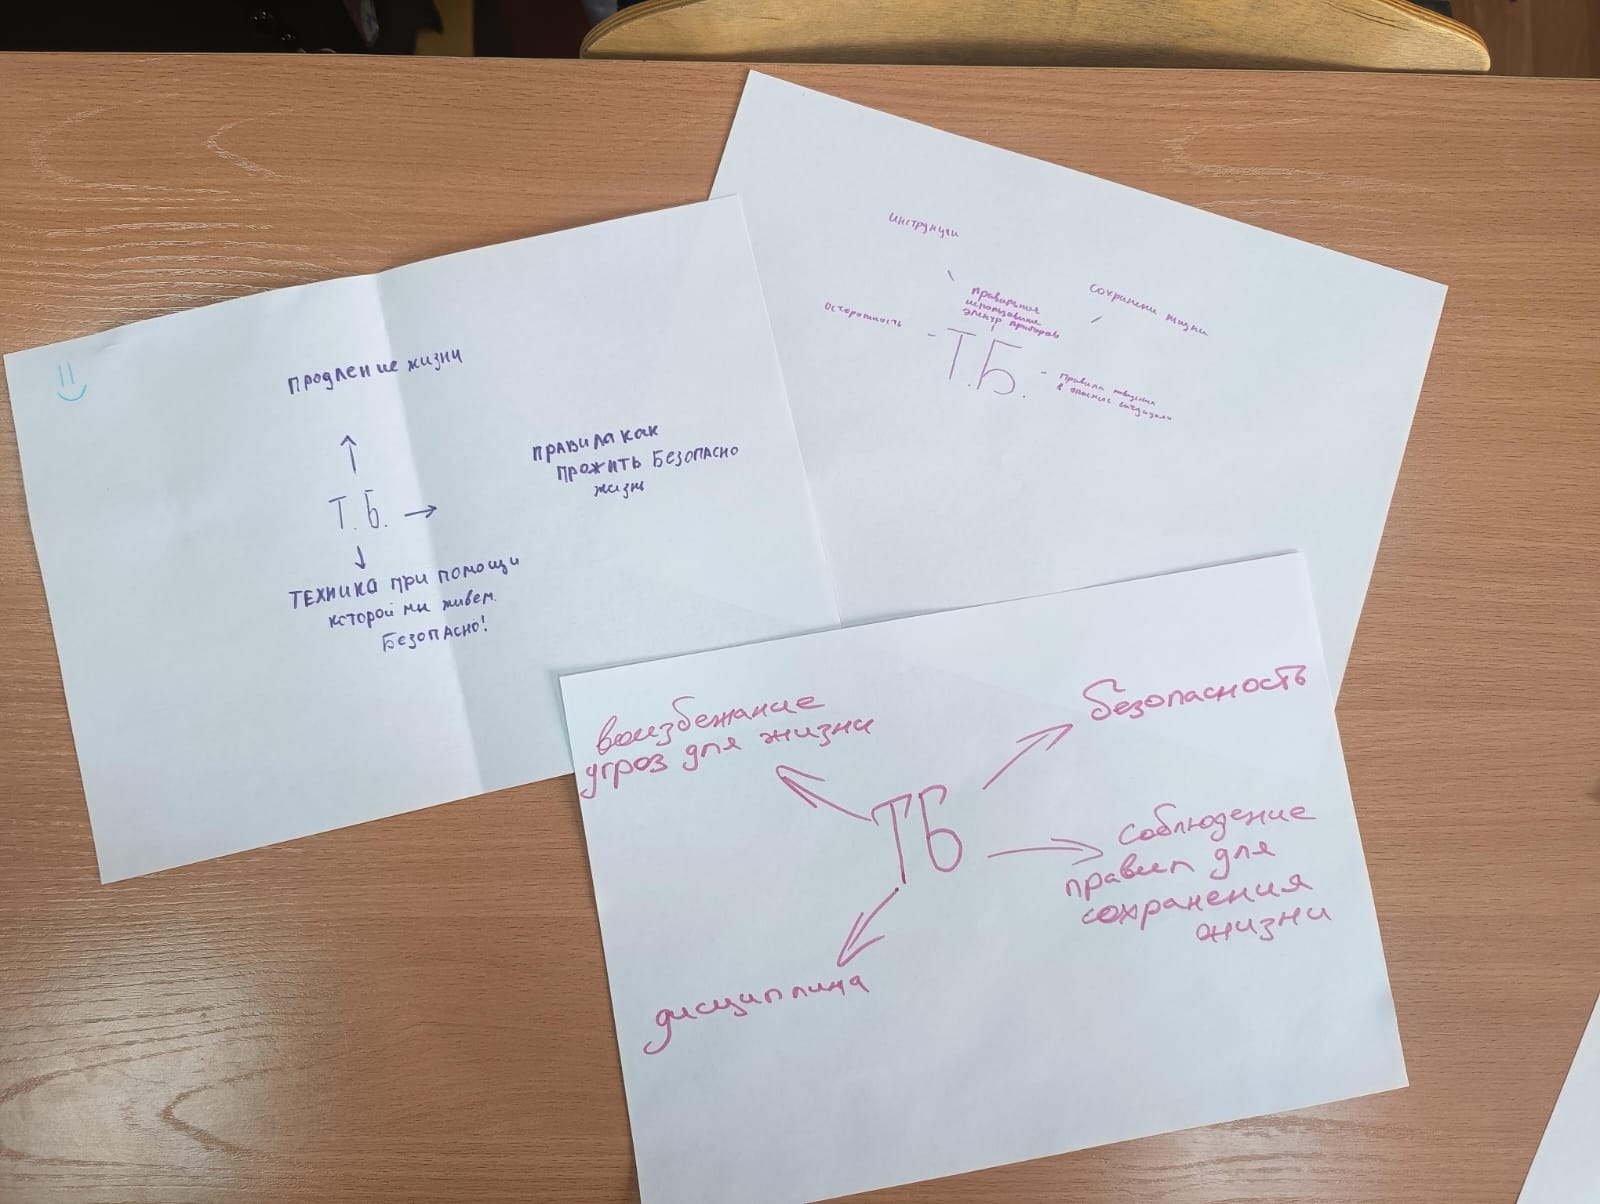 продление жизни
Т.Б.
правила как
прожить Безопасно
жизнь
ТЕХНИКА при помощи
которой мы живем
Безопасно!
инструкции
Осторожность
правильное
использование
электр приборов
сохранени жизни
Т.Б.
правила поведения
в опасние ситуации
воизбежание
угроз для жизни
безопасность
ТБ
соблюдение
правил для
сохранения
жизни
дисциплина